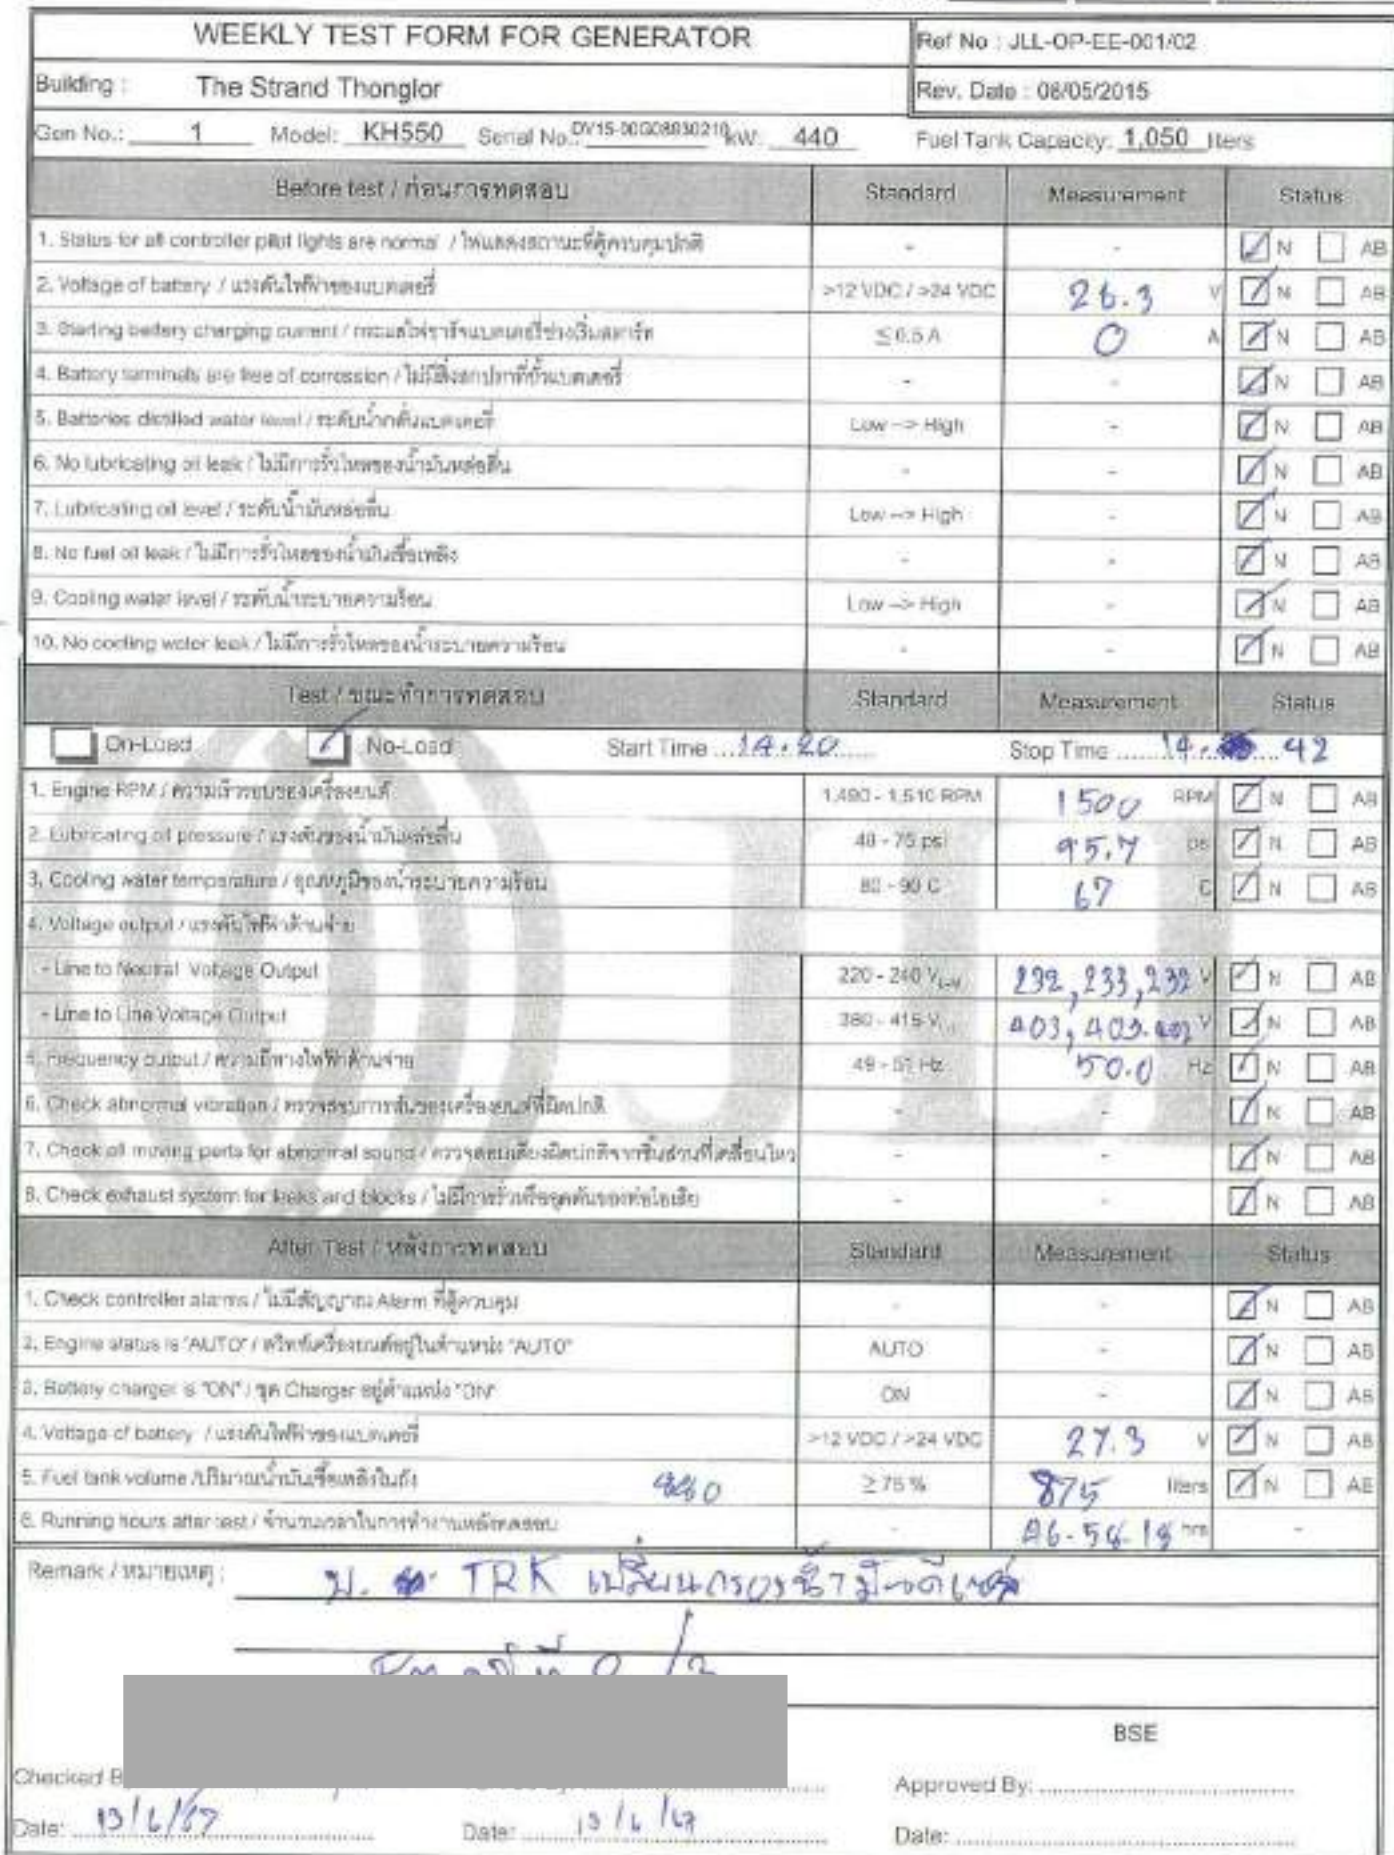 WEEKLY TEST FORM FOR GENERATOR
Ref No : JLL-OP-EE-001/02
Building : The Strand Thonglor
Rev. Date : 08/05/2015
Gen No.: 1 Model: KH550 Serial No.: kW: 440 Fuel Tank Capacity: 1,050 liters
Before test / ก่อนการทดสอบ Standard Measurement Status
1. Status for all controller pilot lights are normal / ไฟแสดงสถานะที่ตู้ควบคุมปกติ - - N AB
2. Voltage of battery / แรงดันไฟฟ้าของแบตเตอรี่ >12 VDC / >24 VDC 26.3 V N AB
3. Starting battery charging current / กระแสไฟชาร์จแบตเตอรี่ช่วงเริ่มสตาร์ท ≤ 0.5 A 0 A N AB
4. Battery terminals are free of corrossion / ไม่มีสิ่งสกปรกที่ขั้วแบตเตอรี่ - - N AB
5. Batteries distilled water level / ระดับน้ำกลั่นแบตเตอรี่ Low --> High - N AB
6. No lubricating oil leak / ไม่มีการรั่วไหลของน้ำมันหล่อลื่น - - N AB
7. Lubricating oil level / ระดับน้ำมันหล่อลื่น Low --> High - N AB
8. No fuel oil leak / ไม่มีการรั่วไหลของน้ำมันเชื้อเพลิง - - N AB
9. Cooling water level / ระดับน้ำระบายความร้อน Low --> High - N AB
10. No cooling water leak / ไม่มีการรั่วไหลของน้ำระบายความร้อน - - N AB
Test / ขณะทำการทดสอบ Standard Measurement Status
On-Load No-Load Start Time ... 14.20 ...... Stop Time ........ 14. 42
1. Engine RPM / ความเร็วรอบของเครื่องยนต์ 1,490 - 1,510 RPM 1500 RPM N AB
2. Lubricating oil pressure / แรงดันของน้ำมันหล่อลื่น 40 - 75 psi 95.7 psi N AB
3. Cooling water temperature / อุณหภูมิของน้ำระบายความร้อน 80 - 90 C 67 C N AB
4. Voltage output / แรงดันไฟฟ้าด้านจ่าย
- Line to Neutral Voltage Output 220 - 240 VL-N 232, 233, 232 V N AB
- Line to Line Voltage Output 380 - 415 VL-L 403, 403. 402 V N AB
5. Frequency output / ความถี่ทางไฟฟ้าด้านจ่าย 49 - 51 Hz 50.0 Hz N AB
6. Check abnormal vibration / ตรวจสอบการสั่นของเครื่องยนต์ที่ผิดปกติ - - N AB
7. Check all moving parts for abnormal sound / ตรวจสอบเสียงผิดปกติจากชิ้นส่วนที่เคลื่อนไหว - - N AB
8. Check exhaust system for leaks and blocks / ไม่มีการรั่วหรืออุดตันของท่อไอเสีย - - N AB
After Test / หลังการทดสอบ Standard Measurement Status
1. Check controller alarms / ไม่มีสัญญาณ Alarm ที่ตู้ควบคุม - - N AB
2. Engine status is "AUTO" / สวิทช์เครื่องยนต์อยู่ในตำแหน่ง "AUTO" AUTO - N AB
3. Battery charger is "ON" / ชุด Charger อยู่ตำแหน่ง "ON" ON - N AB
4. Voltage of battery / แรงดันไฟฟ้าของแบตเตอรี่ >12 VDC / >24 VDC 27.3 V N AB
5. Fuel tank volume /ปริมาณน้ำมันเชื้อเพลิงในถัง 880 ≥ 75 % 875 liters N AB
6. Running hours after test / จำนวนเวลาในการทำงานหลังทดสอบ - hrs -
Remark / หมายเหตุ : บ. TRK เปลี่ยนกรองน้ำมันดีเซล
BSE
Checked Approved By:
Date: 13/6/67 Date: 13/6/67 Date:
JLL